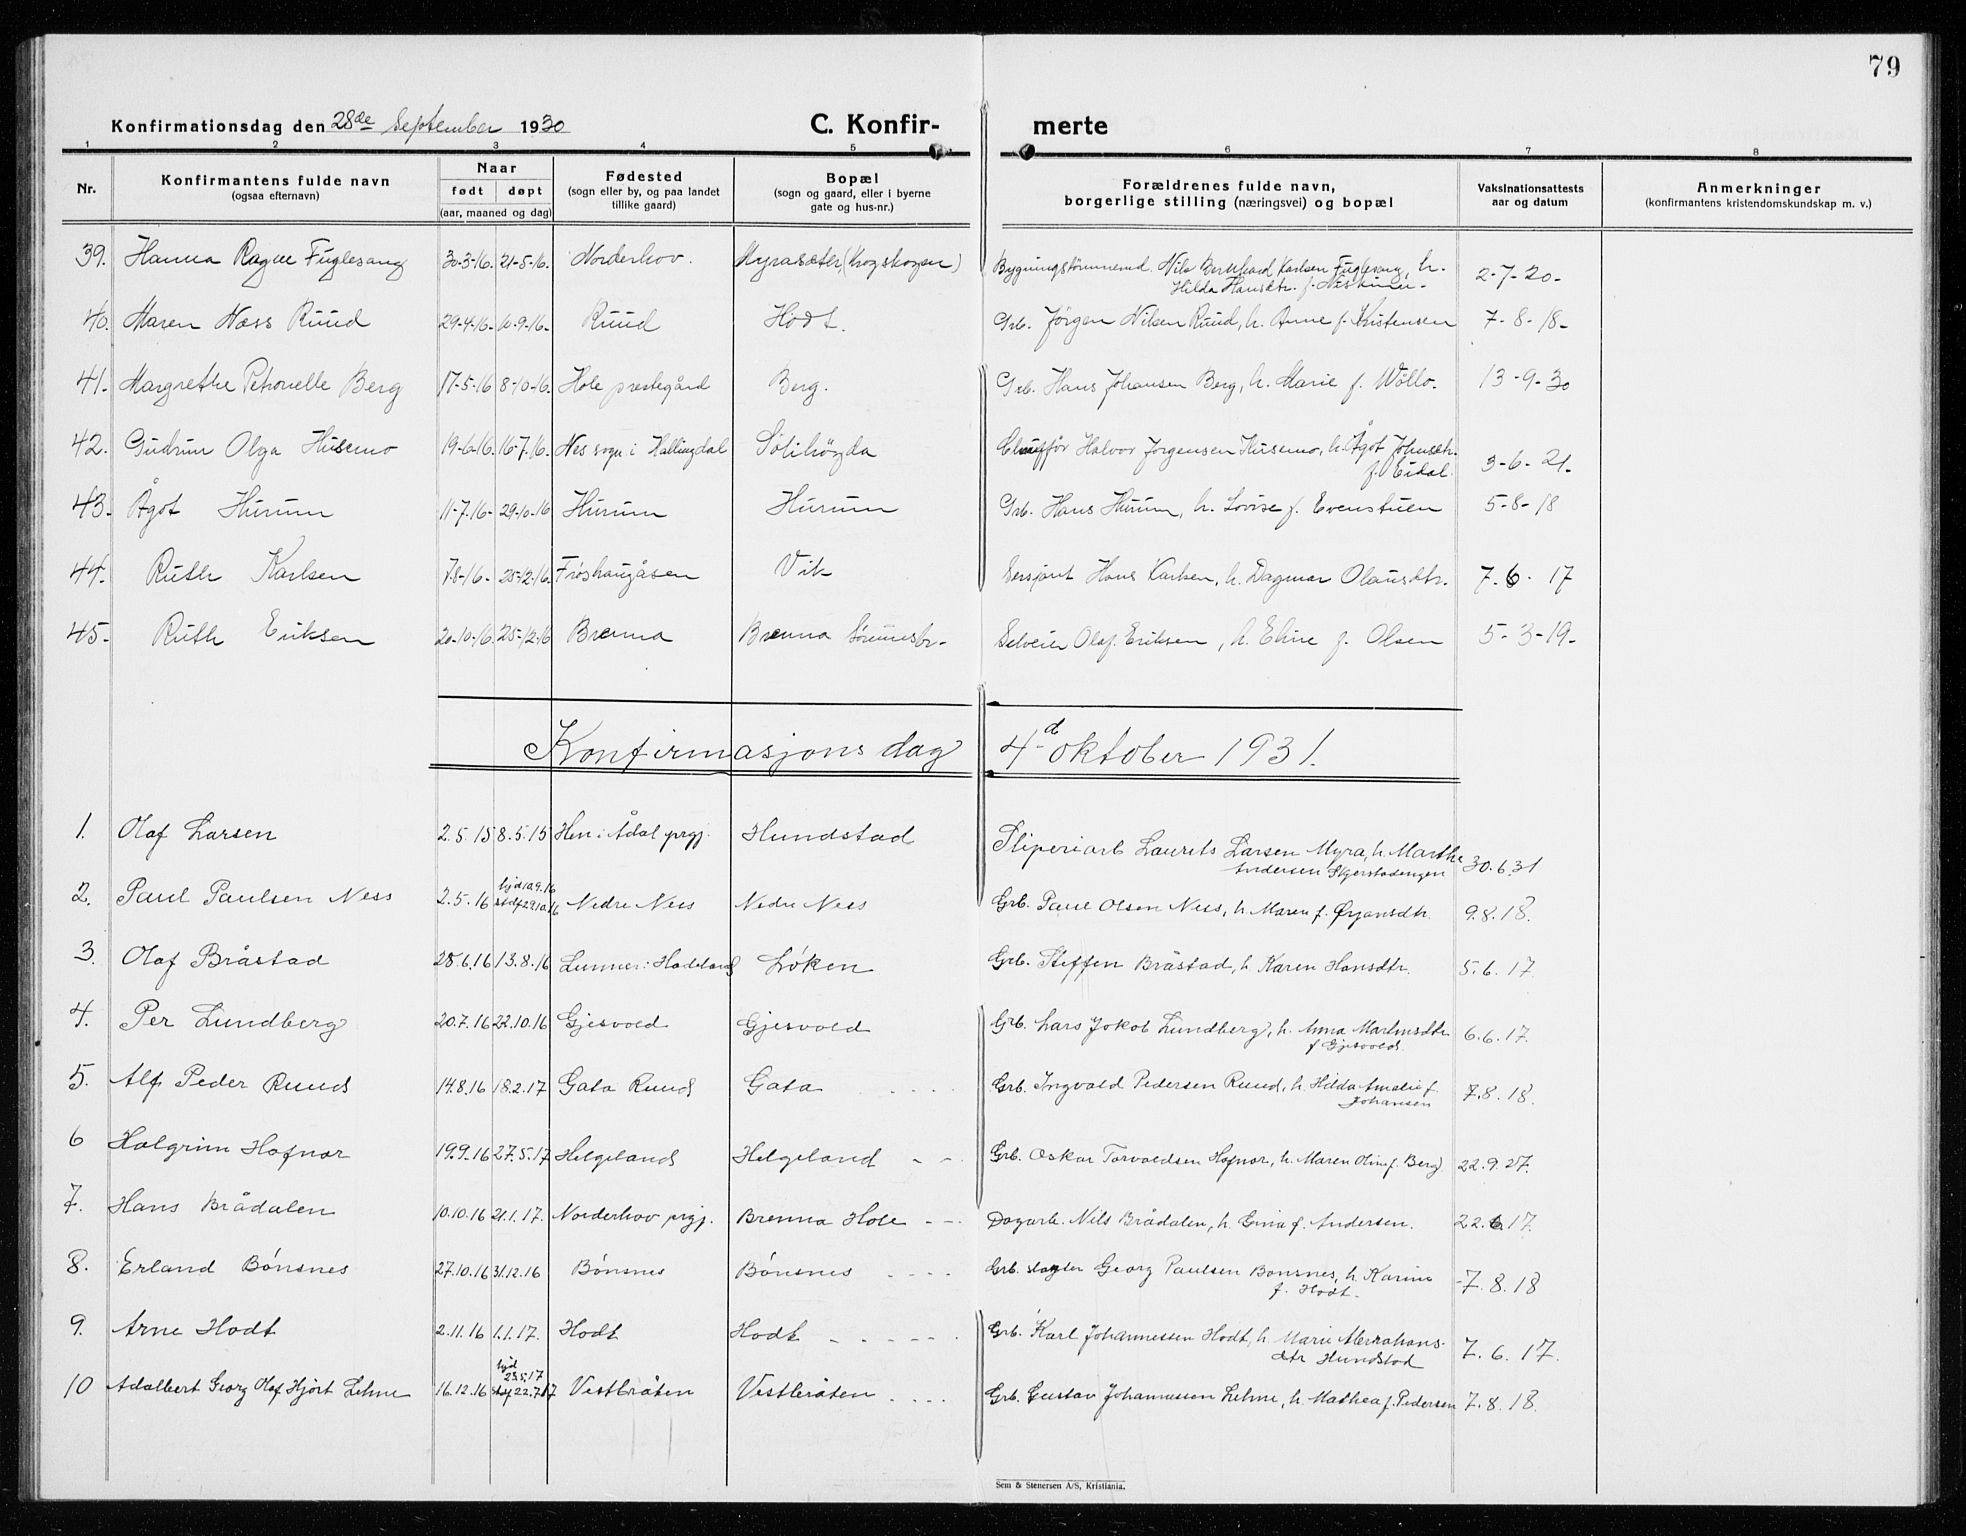 79
Konfirmationsdag den 28de September 1930 C. Konfir- merte
1 2 3 4 5 6 7 8
Nr. Konfirmantens fulde navn (ogsaa efternavn) Naar født døpt (aar, maaned og dag) Fødested (sogn eller by, og paa landet tillike gaard) Bopæl (sogn og gaard, eller i byerne gate og hus-nr.) Forældrenes fulde navn, borgerlige stilling (næringsvei) og bopæl Vaksinationsattests aar og datum Anmerkninger (konfirmantens kristendomskundskap m. v.)
39. Hanna Ragne Fuglesang 30-3-16. 21-5-16. Norderhov. Myrasæter (Krogskogen) Nils Bernhard Karlsen Fuglesang, h. 2-7-20-
Hilda Hansdtr. f.
40. Maren Næss Ruud 29-4-16- 10-9-16- Ruud Hodt. Grb. Jørgen Nilsen Ruud, h. Anne f. Kristensen 7-8-18-
41. Margrethe Petronelle Berg 17-5-16 8-10-16. Hole prestegård Berg. Grb. Hans Johansen Berg, h. Marie f. Wøllo. 13-9-30
42. Gudrun Olga Husemo 19-6-16. 16-7-16. Nes sogn i Hallingdal Sølihøgda Chauffør Halvor Jørgensen Husemo, h. Ågot Johnsdtr. 3-6-21-
f. Eidal.
43. Ågot Hurum 11-7-16- 29-10-16 Hurum Hurum Grb. Hans Hurum, h. Lovise f. Evenstuen 5-8-18
44. Ruth Karlsen 7-8-16- 25-12-16. Frøshaugåsen Vik Sersjant Hans Karlsen, h. Dagmar Olausdtr. 7-6-17
45. Ruth Eriksen 20-10-16. 25-12-16 Brenna Brenna Sørumsbr- Selveier Olaf Eriksen, h. Eline f. Olsen 5-3-19-
Konfirmasjonsdag 4-d oktober 1931.
1. Olaf Larsen 2.5.15 8.5.15 Hen i Ådal prgj. Hundstad Sliperiarb Laurits Larsen Myra, h. Marthe 30.6.31
Andersen Skjerstadengen
2. Paul Paulsen Ness 2.5.16 hjd 10.9.16 stdf 29.10.16 Nedre Ness Nedre Ness Grb. Paul Olsen Ness, h. Maren f. Ørjansdtr. 9.8.18.
3. Olaf Bråstad 28.6.16 13.8.16 Lunner i Hadeland Løken Grb. Steffen Bråstad, h Karen Hansdtr. 5.6.17
4. Per Lundberg 20.7.16 22.10.16 Gjesvold Gjesvold Grb. Lars Jakob Lundberg, h. Anna Martinsdtr 6.6.17.
f Gjesvold.
5. Alf Peder Ruud 14.8.16 18.2.17 Gata Ruud Gata Grb. Ingvald Pedersen Ruud, h. Hilda Amalie f. 7.8.18.
Johansen
6 Halgrim Hafnor 19.9.16 27.5.17 Helgeland Helgeland - - Grb. Oskar Torvaldsen Hafnor, h. Maren Oline f. Berg 22.9.27.
7. Hans Brådalen 10.10.16 21.1.17. Norderhov prgj. Brenna Hole - - Dagarb. Nils Brådalen, h. Gina f. Andersen. 22.6.17.
8. Erland Bønsnes 27.10.16 31.12.16 Bønsnes Bønsnes - - - - Grb. slagter Georg Paulsen Bønsnes, h. Karine -7.8.18
f. Hodt.
9. Arne Hodt 2.11.16 1.1.17. Hodt Hodt - - - - - Grb. Karl Johannessen Hodt, h Marie Abrahams- 7.6.17.
dtr Hundstad
10 Adalbert Georg Olaf Hjört Lehne 16.12.16 hjd 25.5.17 stdf 22.7.17 Vestbråten Vestbråten - - - - Grb. Gustav Johannessen Lehne, h. Mathea f. Pedersen 7.8.18.
Sem & Stenersen A/S, Kristiania.